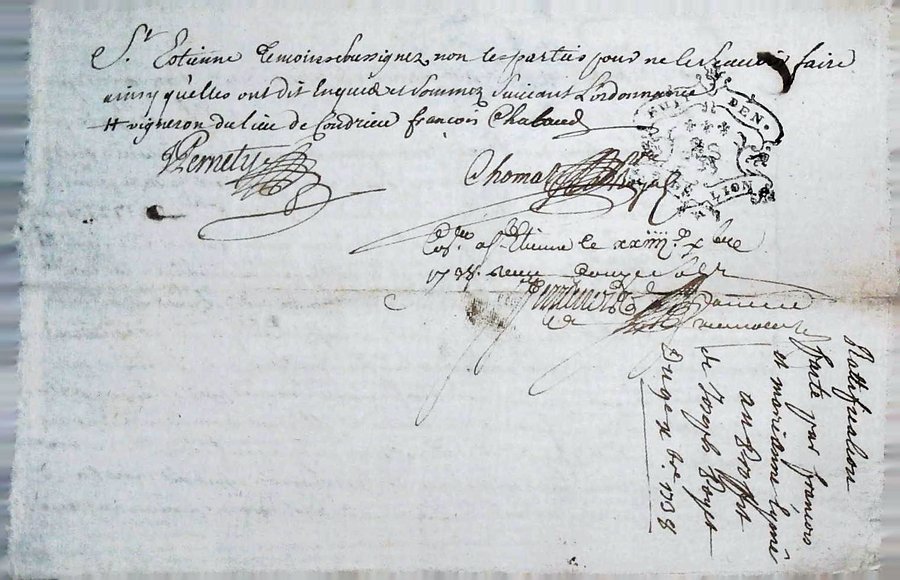 St Etienne temoins soussignez non les parties pour ne le scavoir faire
ainsy qu'elles ont dit Enquis et Sommez Suivant L'ordonnance
H vigneron du lieu de Condrieu françois Chaboud
Pernety
Thomas
DEN.
LION
a St Etienne le xxiiii.e xbre
1738. receu douze Sols
Rattification
faite par françois
et marianne
au Proffit
de Joseph
Du 9e xbre 1738